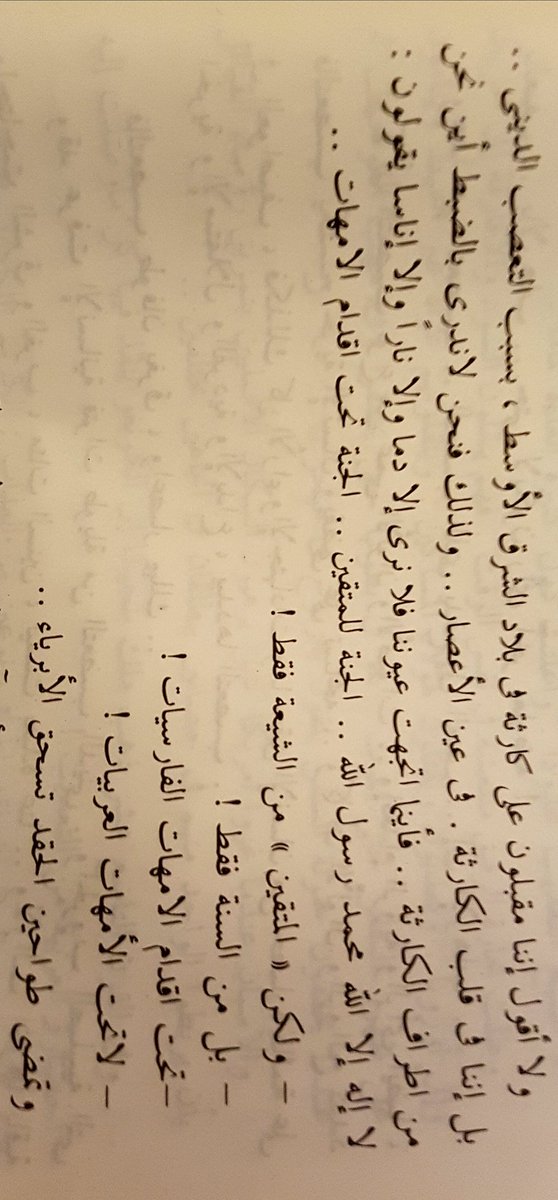 ولا أقول إننا مقبلون على كارثة فى بلاد الشرق الأوسط ، بسبب التعصب الدينى ..
بل إننا فى قلب الكارثة . فى عين الأعصار .. ولذلك فنحن لاندرى بالضبط أين نحن
من اطراف الكارثة .. فأينما اتجهت عيوننا فلا نرى إلا دما وإلا ناراً وإلا إناسا يقولون :
لا إله إلا الله محمد رسول الله .. الجنة للمتقين .. الجنة تحت اقدام الامهات ..
– ولكن « المتقين » من الشيعة فقط !
– بل من السنة فقط !
– تحت اقدام الامهات الفارسيات !
– لاتحت الأمهات العربيات !
وتمضى طواحين الحقد تسحق الأبرياء ..